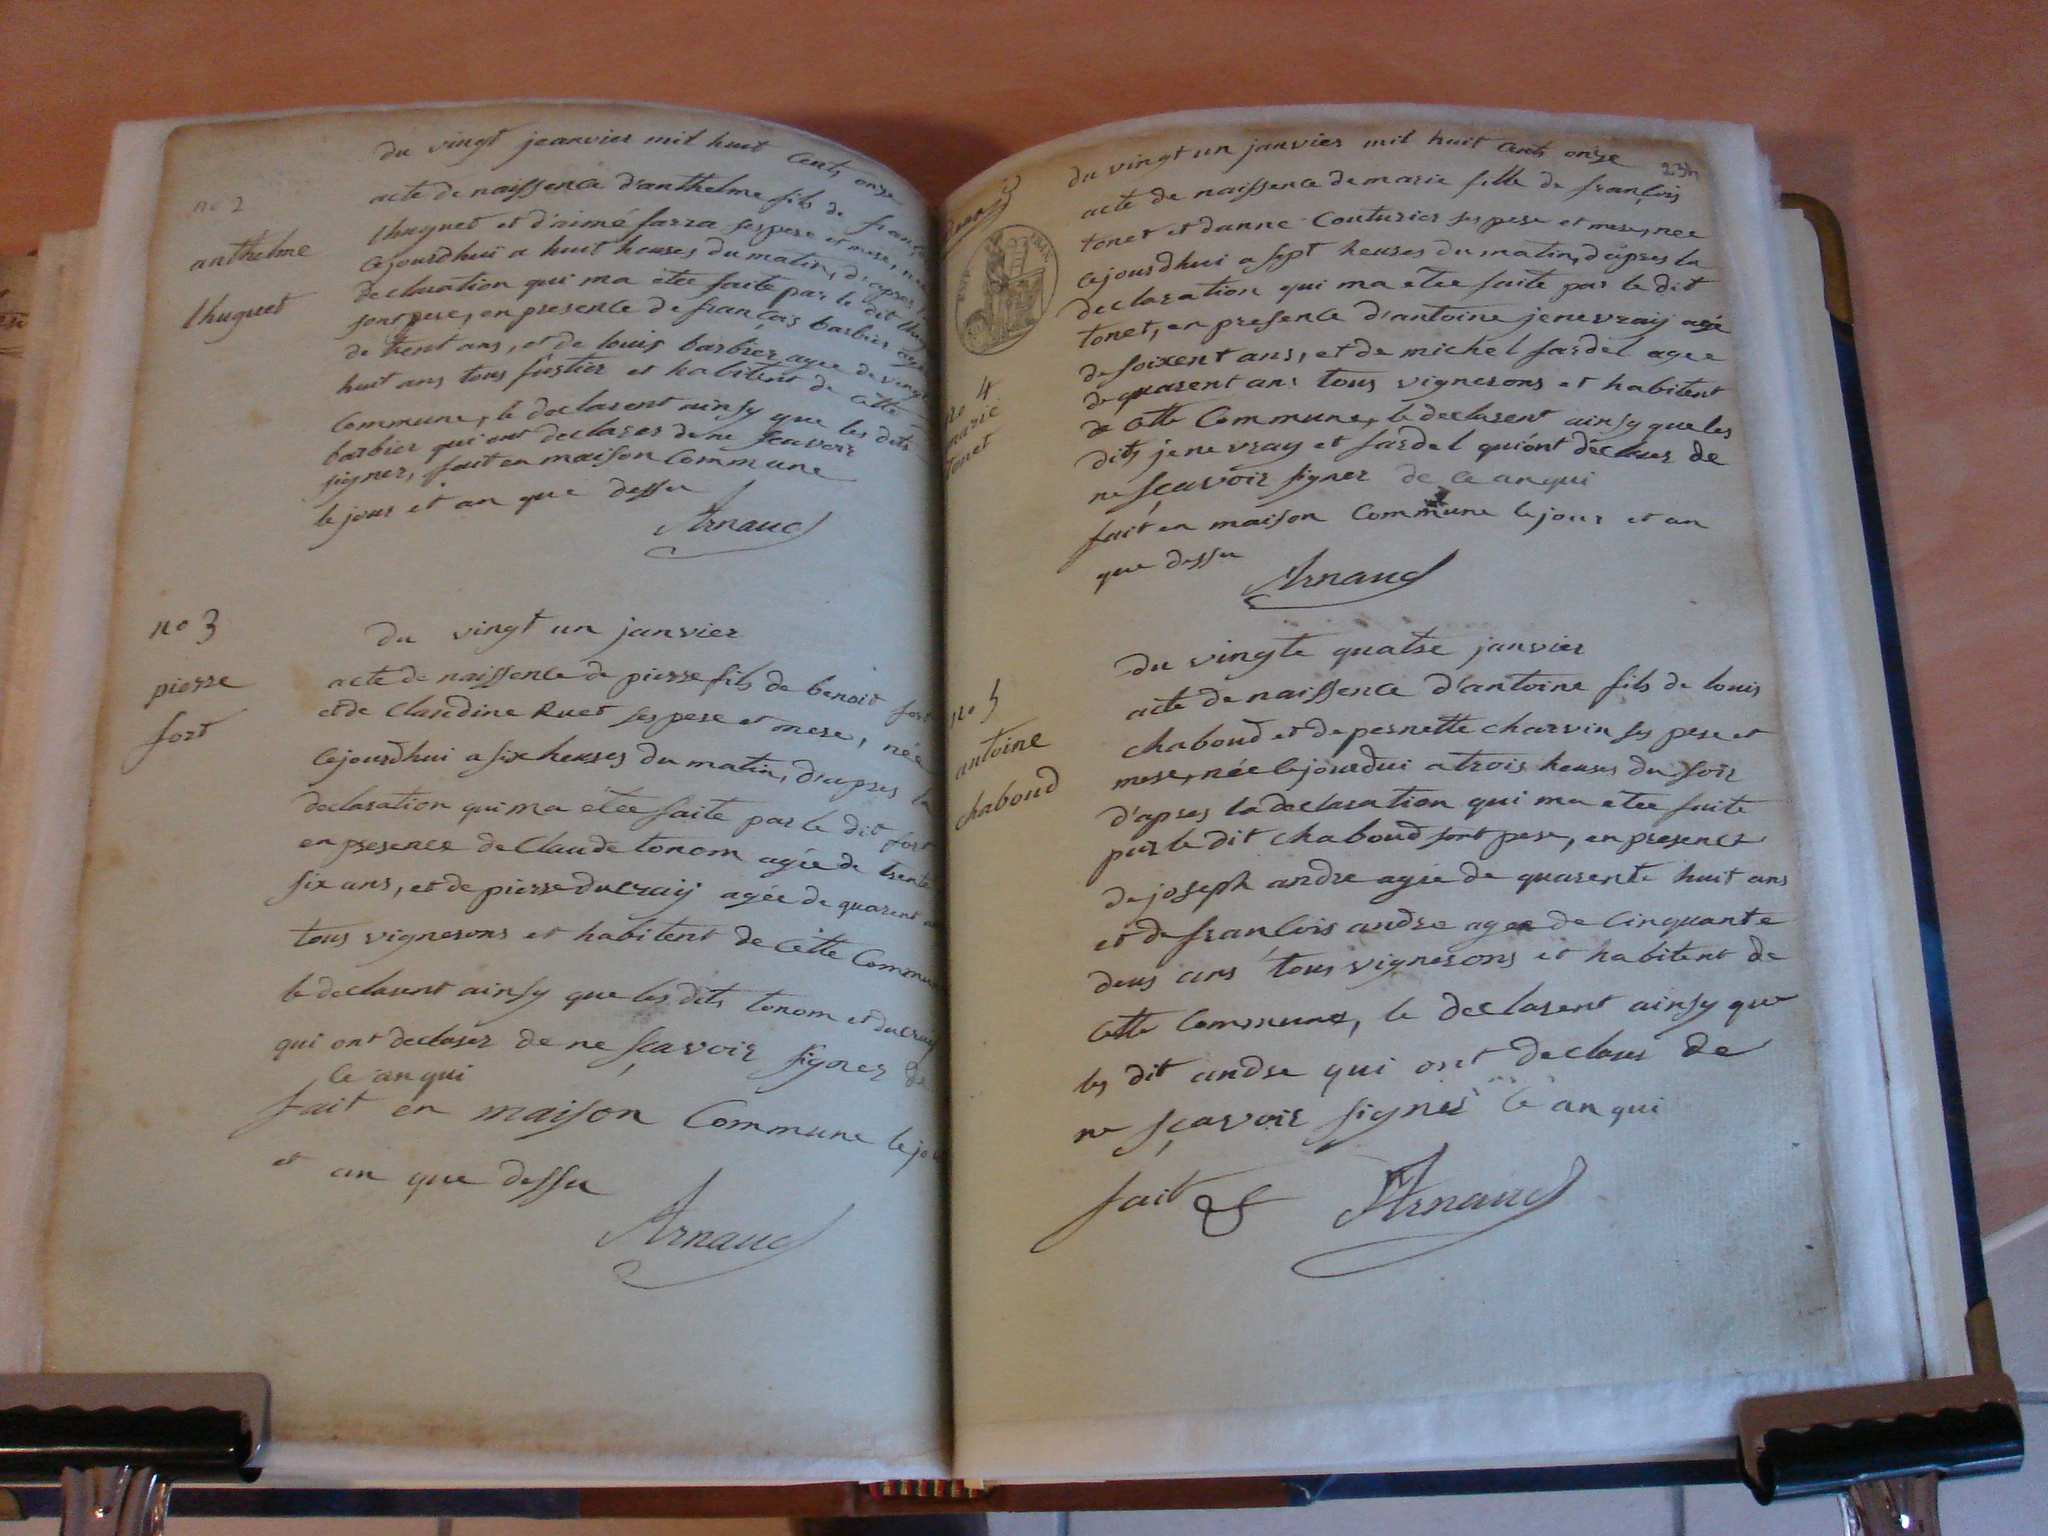 du vingt jeanvier mil huit cents onze
no 2
acte de naissence d'anthelme fils de
anthelme
thuguet
thuguet et d'aimé farra ses pere et mere, née
cejourdhui a huit heures du matin, d'apres la
declaration qui ma etee faite par le dit
sont pere, en presence de françois barbier agée
de trent ans, et de louis barbier agee de vingt
huit ans tous fustier et habitent de cette
Commune, le declarent ainsy que les dits
barbier qui ont declarer de ne scavoir
signer, fait en maison Commune
le jour et an que dessu
Arnaud
no 3
pierre
fort
du vingt un janvier
acte de naissence de pierre fils de benoit fort
et de Claudine Ruet ses pere et mere, née
cejourdhui a six heures du matin, d'apres la
declaration qui ma etée faite par le dit fort
en presence de Claude tonom agée de trente
six ans, et de pierre ducraij agée de quarent
tous vignerons et habitent de cette Commune
le declarent ainsy que les dits tonom et ducray
qui ont declarer de ne sçavoir signer de
ce anqui
fait en maison Commune le jour
et an que dessu
Arnaud
234
du vingt un janvier mil huit cents onze
acte de naissence de marie fille de françois
tonet et danne Couturier ses pere et mere, née
cejourdhui a sept heures du matin, d'apres la
declaration qui ma etee faite par le dit
tonet, en presence d'antoine jenevraij agé
de soixent ans, et de michel fardel agee
de quarent ans tous vignerons et habitent
no 4
marie
tonet
de cette Commune, le declarent ainsy que les
dits jenevray et fardel qui ont déclarer de
ne sçavoir signer de ce anqui
fait en maison Commune le jour et an
que dessu
Arnaud
no 5
antoine
chaboud
du vingte quatre janvier
acte de naissence d'antoine fils de louis
chaboud et de pernette charvin ses pere et
mere, née cejourdui a trois heures du soir
d'apres la declaration qui ma etee faite
par le dit chaboud sont pere, en presence
de joseph andre agée de quarente huit ans
et de francois andre agee de cinquante
deus ans tous vignerons et habitent de
cette Commune, le declarent ainsy que
les dit andre qui ont declarer de
ne sçavoir signer ce anqui
fait &
Arnaud